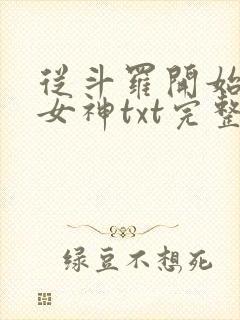 從斗羅開始
女神txt完整
绿豆不想死